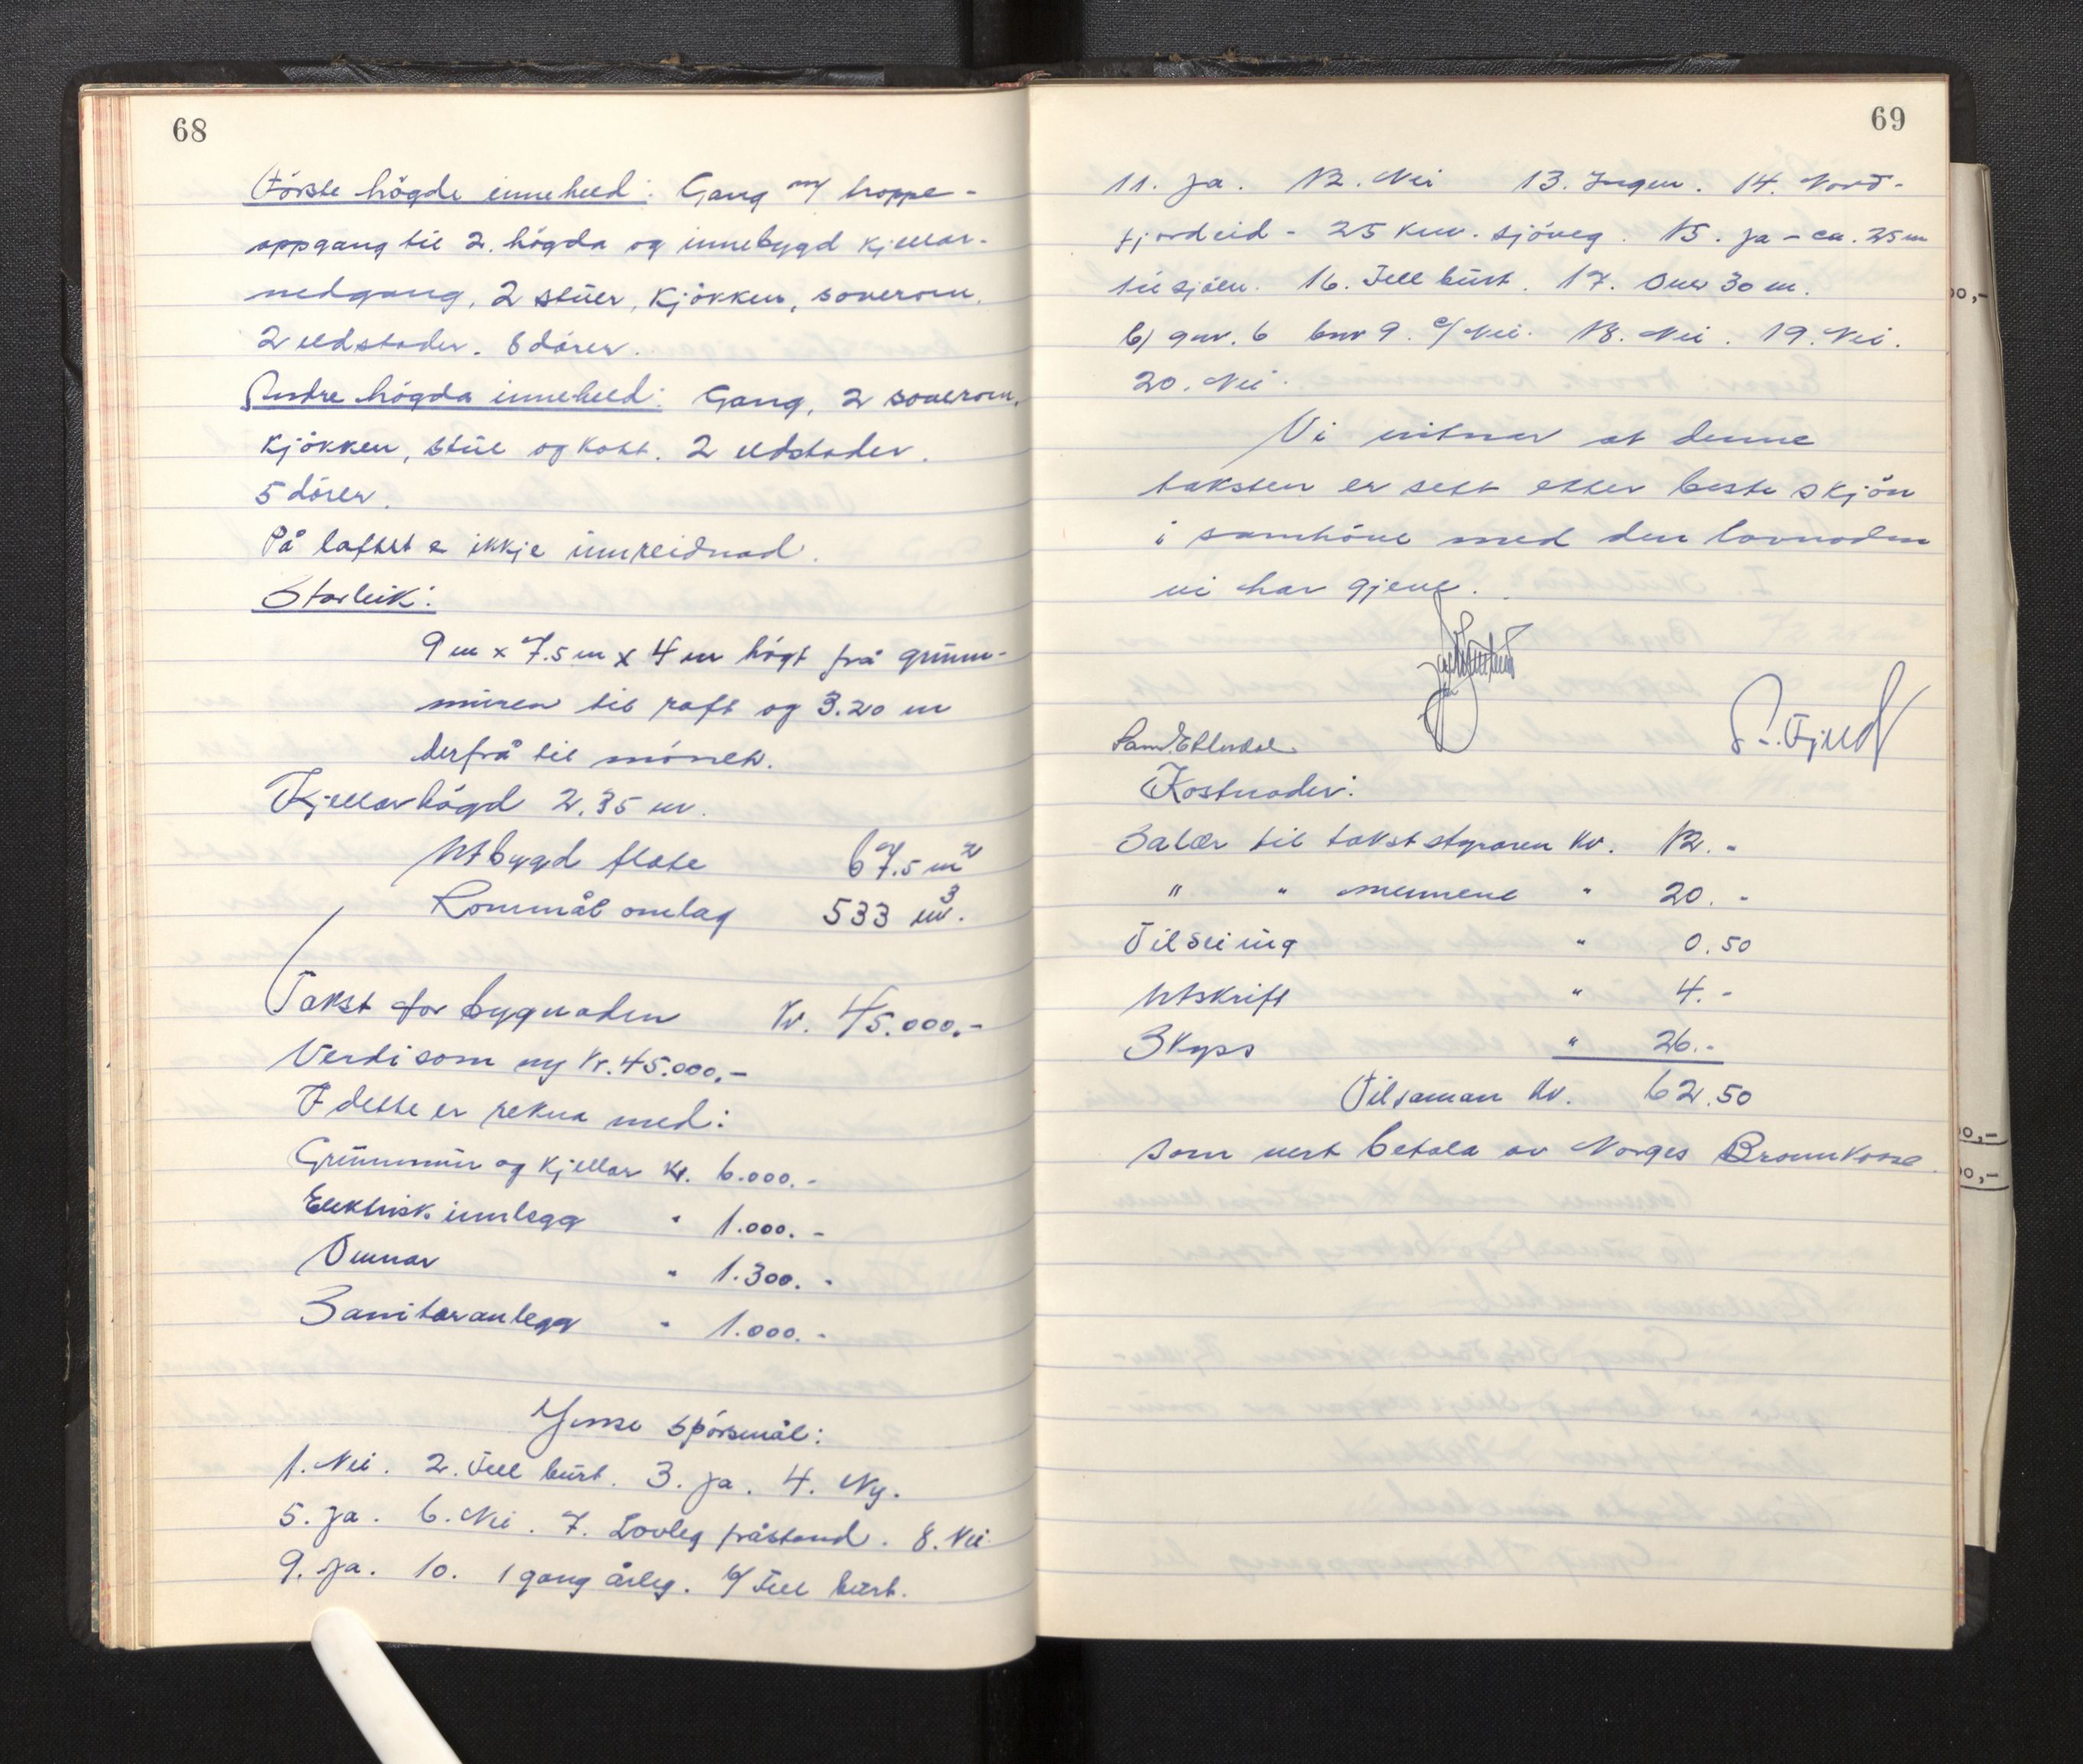 68
Förste högde inneheld: Gang m/ troppe-
oppgang til 2. högda og innebygd kjellar-
nedgang, 2 stüer, kjökken, soverom.
2 eldstader. 8 dörer.
Andre högda inneheld: Gang, 2 soverom,
kjökken, stüe og kott. 2 eldstader.
5 dörer.
På loftet e ikkje innreidnad.
Storleik:
9 m x 7.5 m x 4 m högt frå grünn-
müren til raft og 3.20 m
derfrå til mönet.
Kjellarhögd 2.35 m.
Utbygd flate 67.5 m²
Rommål omlag 533 m³.
Takst for bygnaden Kr. 45.000.-
Verdi som ny Kr. 45.000.-
I dette er rekna med:
Grünnmür og kjellar Kr. 6.000.-
Elektrisk innlegg " 1.000.-
Omnar " 1.300.-
Sanitæranlegg " 1.000.-
Ymse spörsmål:
1. Nei. 2. Fell bürt. 3. Ja. 4. Ny.
5. Ja. 6. Nei. 7. Lovleg fråstand. 8. Nei
9. Ja. 10. 1 gang årleg. b/ Fell bürt.
69
11. Ja. 12. Nei 13. Ingen. 14. Nord-
fjordeid - 25 km. sjöveg. 15. Ja - ca. 25 m
til sjöen. 16. Fell bürt. 17. Over 30 m.
b) gnr. 6 bnr 9. c/ Nei. 18. Nei. 19. Nei.
20. Nei.
Vi vitnar at denne
taksten er sett etter beste skjön
i samhöve med den lovnaden
vi har gjeve.
Kostnader:
Salær til takststyraren Kr. 12.-
" " mennene " 20.-
Tilseiing " 0.50
Utskrift " 4.-
Skyss " 26.-
Tilsaman Kr. 62.50
som vert betala av Norges Brannkasse.